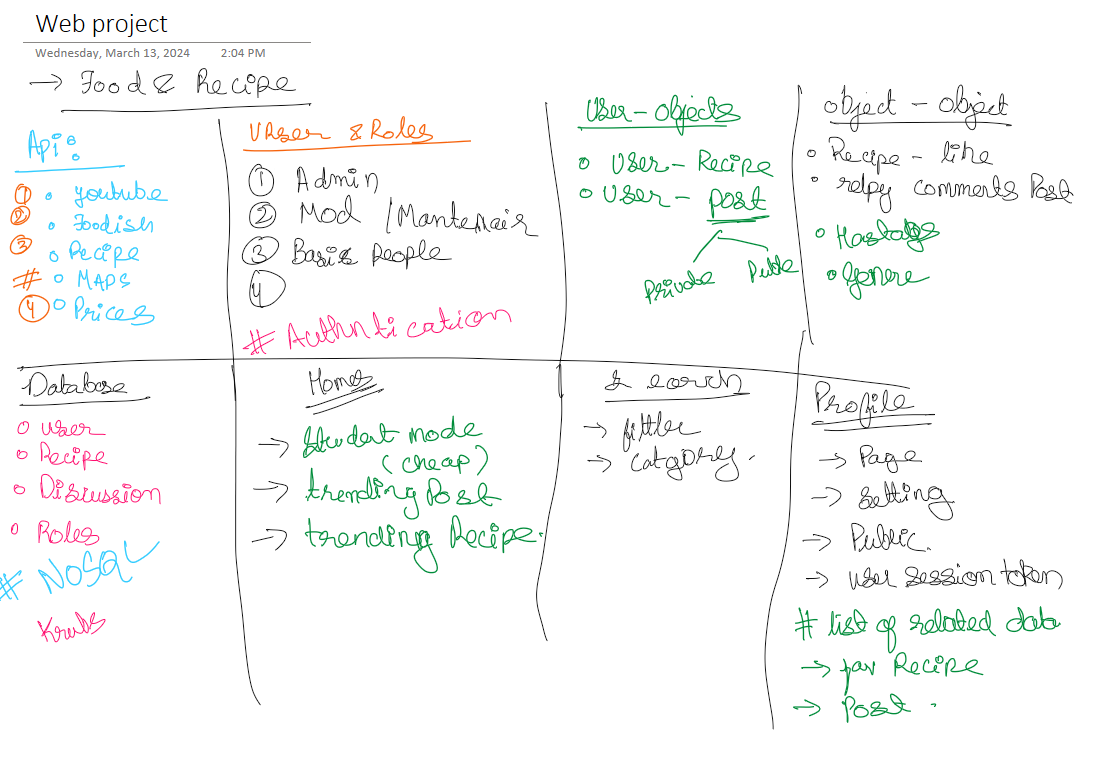 Web project
Wednesday, March 13, 2024 2:04 PM
→ Food & Recipe
Api:
① • Youtube
② • Foodish
③ ○ Recipe
# ○ MAPS
④ ○ Prices
User & Roles
① Admin
② Mod /Mantenair
③ Basic people
④
# Authntication
User - objects
○ User - Recipe
○ User - post
Private Public
object - object
○ Recipe - like
• relpy comments Post
○ Hastags
○ Genere
Database
○ user
○ Recipe
○ Discussion
○ Roles
# NoSQL
Homes
→ Student mode
(cheap)
→ trending Post
→ trending Recipe.
Search
→ fitler
→ catgorey.
Profile
→ Page
→ Setting
→ Public.
→ user session token
# list of related data
→ fav Recipe
→ Post .